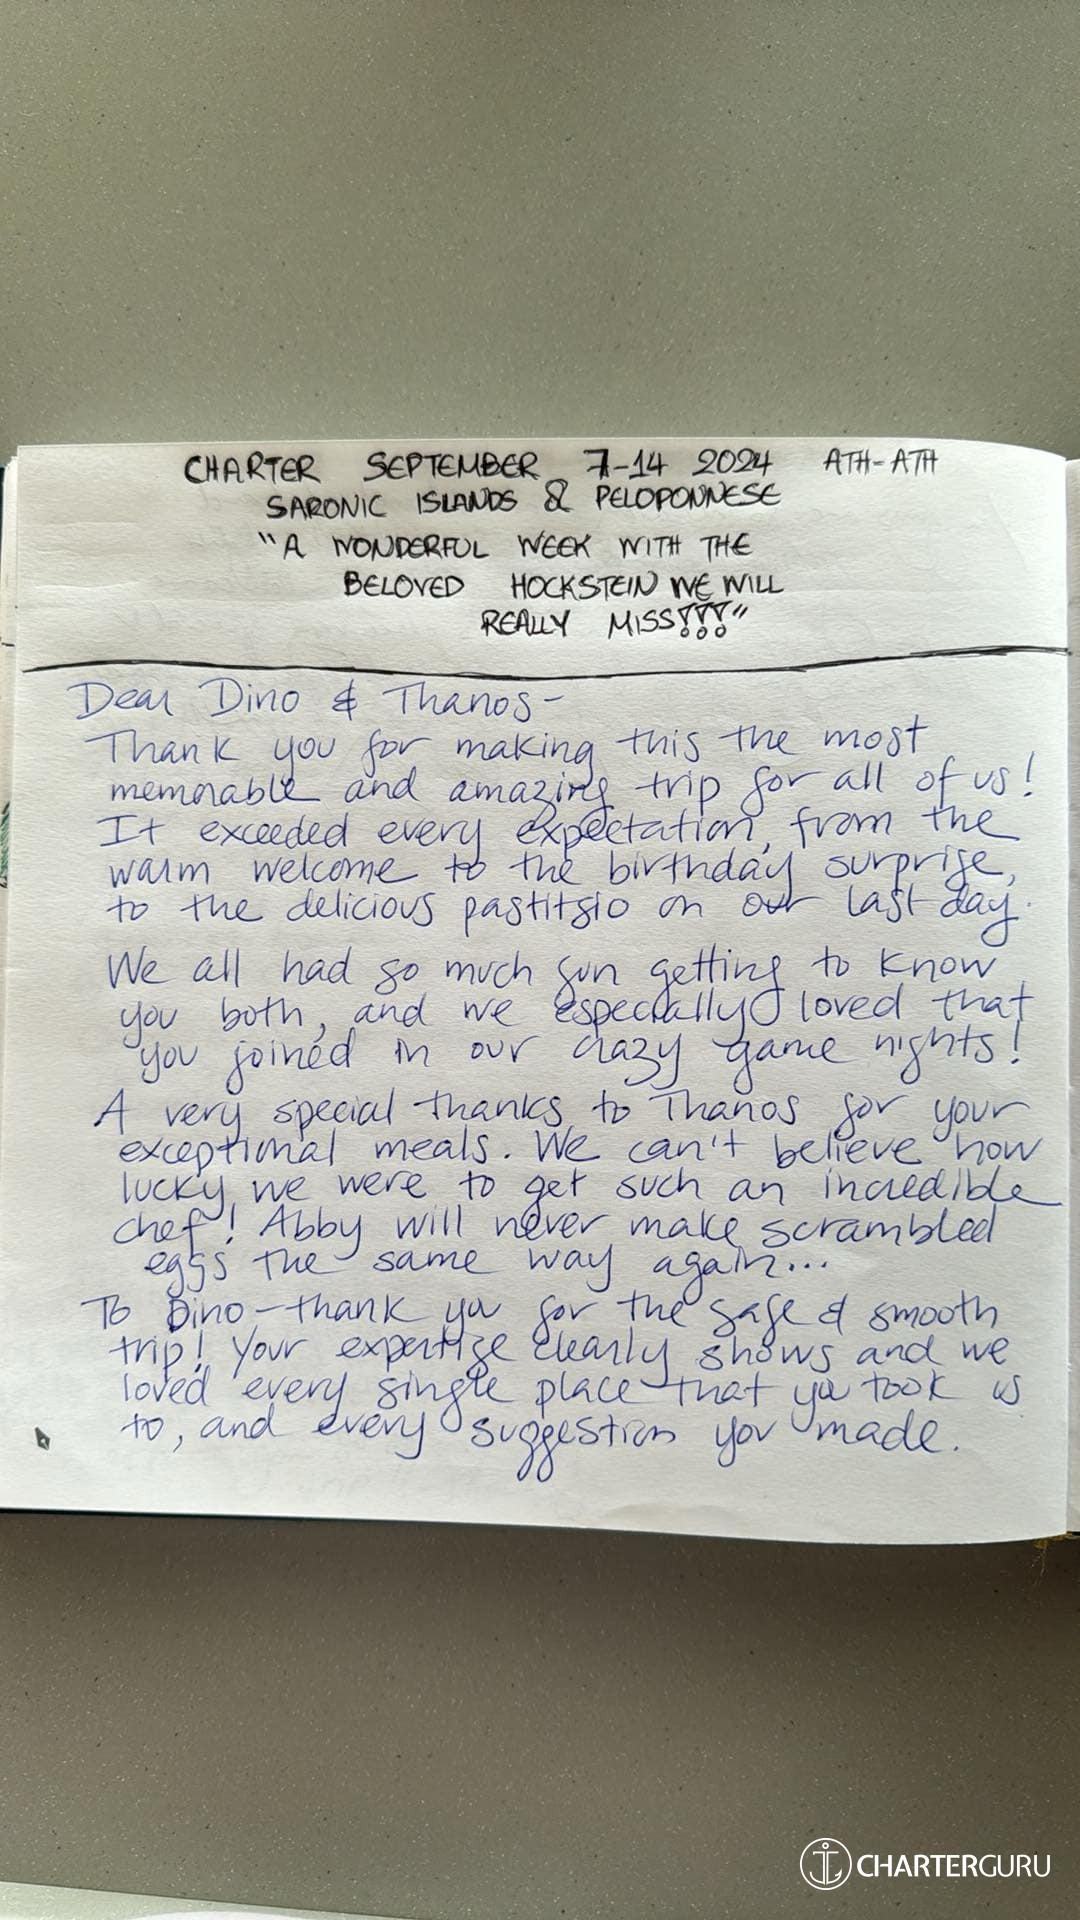 CHARTER SEPTEMBER 7-14 2024 ATH-ATH
SARONIC ISLANDS & PELOPONNESE
"A WONDERFUL WEEK WITH THE
BELOVED HOCKSTEIN WE WILL
REALLY MISS!!!"
Dear Dino & Thanos-
Thank you for making this the most
memorable and amazing trip for all of us!
It exceeded every expectation, from the
warm welcome to the birthday surprise,
to the delicious pastitsio on our last day.
We all had so much fun getting to know
you both, and we especially loved that
you joined in our crazy game nights!
A very special thanks to Thanos for your
exceptional meals. We can't believe how
lucky we were to get such an incredible
chef! Abby will never make scrambled
eggs the same way again...
To Dino-thank you for the safe & smooth
trip! Your expertise clearly shows and we
loved every single place that you took us
to, and every suggestion you made.
CHARTERGURU